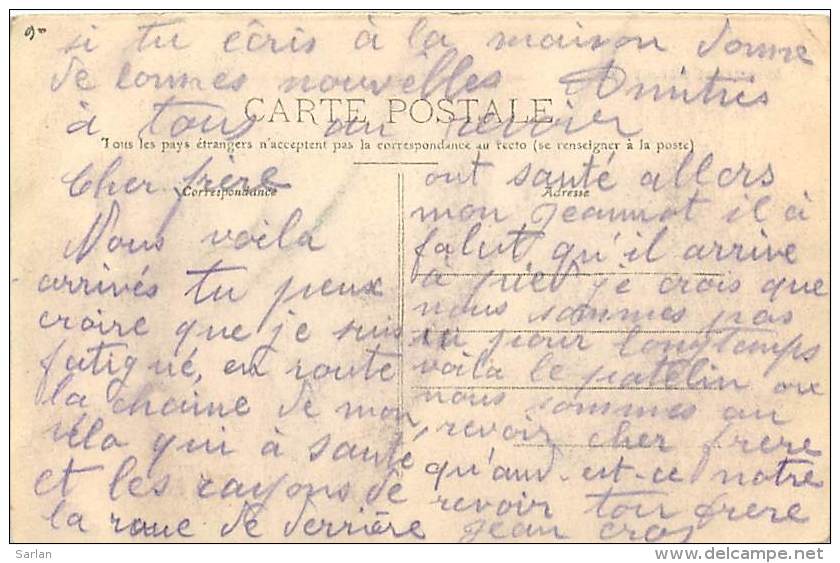 si tu écris à la maison donne
de bonnes nouvelles Amitiés
à tous au revoir
CARTE POSTALE
Tous les pays étrangers n'acceptent pas la correspondance au recto (se renseigner à la poste)
Correspondance
Cher frère
Nous voila
arrivés tu peux
croire que je suis
fatigué, en route
la chaine de mon
vélo qui à sauté
et les rayons de
la roue de derrière
Adresse
ont sauté allors
mon Jeannot il à
falut qu'il arrive
a pied je crois que
nous sommes pas
ici pour longtamps
voila le patelin ou
nous sommes au
revoir cher frere
qu'and-est-ce notre
revoir ton frere
Jean Cros
Sarlan
www.delcampe.net